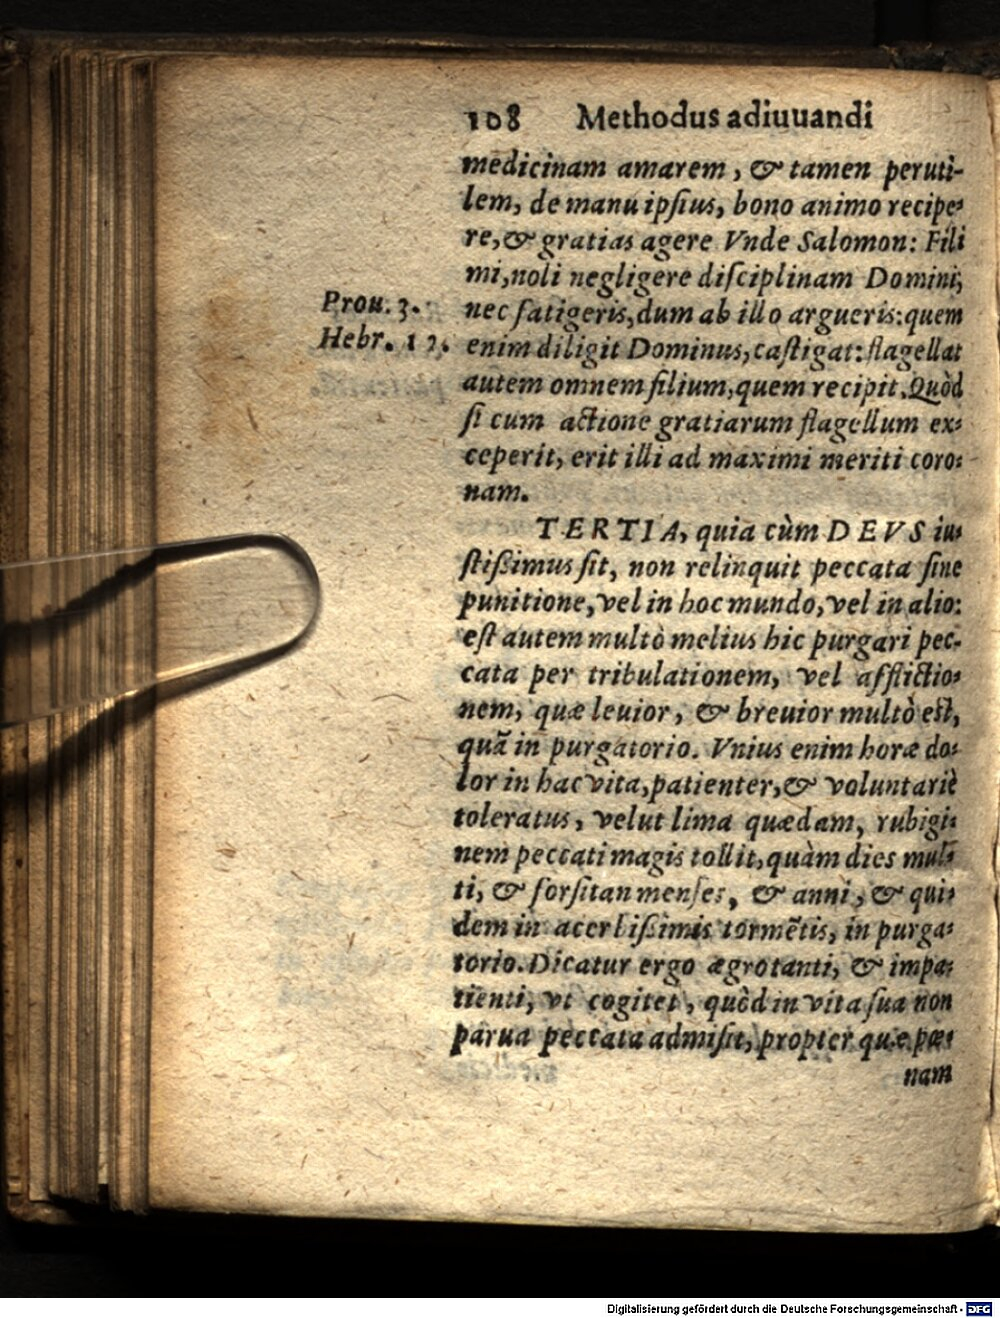 108 Methodus adiuuandi
medicinam amarem, & tamen peruti-
lem, de manu ipſius, bono animo recipe-
re, & gratias agere Vnde Salomon: Fili
mi, noli negligere diſciplinam Domini,
Prou. 3.
nec fatigeris, dum ab illo argueris: quem
Hebr. 12.
enim diligit Dominus, caſtigat: flagellat
autem omnem filium, quem recipit. Quòd
ſi cum actione gratiarum flagellum ex-
ceperit, erit illi ad maximi meriti coro-
nam.
TERTIA, quia cùm DEVS iu-
ſtißimus ſit, non relinquit peccata ſine
punitione, vel in hoc mundo, vel in alio:
eſt autem multò melius hic purgari pec-
cata per tribulationem, vel afflictio-
nem, quæ leuior, & breuior multò eſt,
quã in purgatorio. Vnius enim horæ do-
lor in hac vita, patienter, & voluntariè
toleratus, velut lima quædam, rubigi-
nem peccati magis tollit, quàm dies mul-
ti, & forſitan menſes, & anni, & qui-
dem in acerbißimis tormẽtis, in purga-
torio. Dicatur ergo ægrotanti, & impa-
tienti, vt cogitet, quòd in vita ſua non
parua peccata admiſit, propter quæ pœ-
nam
Digitalisierung gefördert durch die Deutsche Forschungsgemeinschaft - DFG